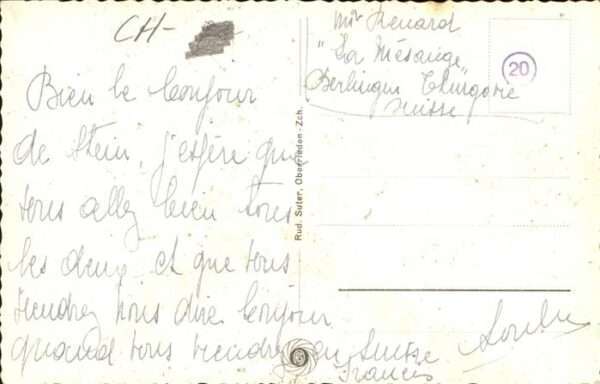 CH-
Bien le bonjour
de Stein, j'espère que
vous allez bien tous
les deux et que vous
viendrez nous dire bonjour
quand vous viendrez en Suisse
Francis
Mr Renard
"La Mésange"
Berlingen Thurgovie
Suisse
20
Rud. Suter, Oberrieden-Zch.